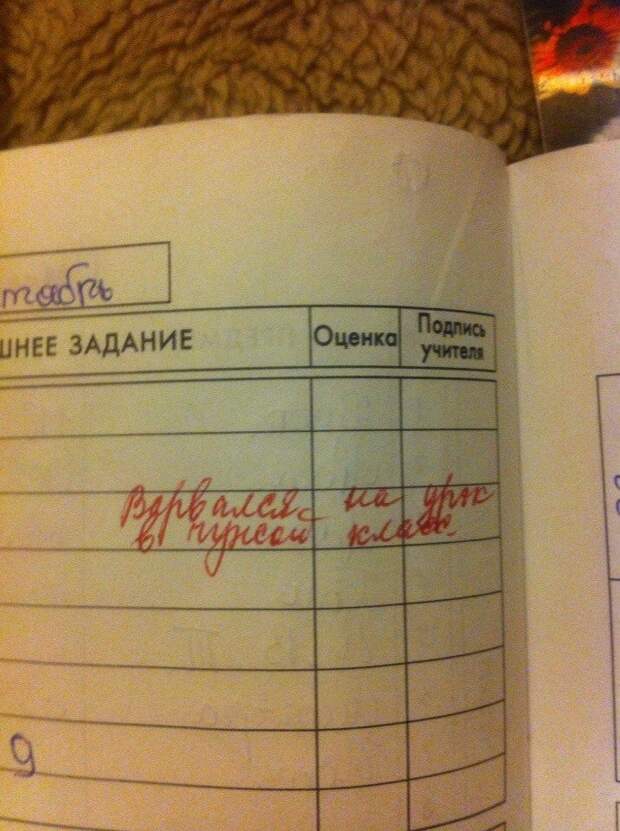 тябрь
ШНЕЕ ЗАДАНИЕ
Оценка
Подпись
учителя
Ворвался на урок
в чужой класс.
9